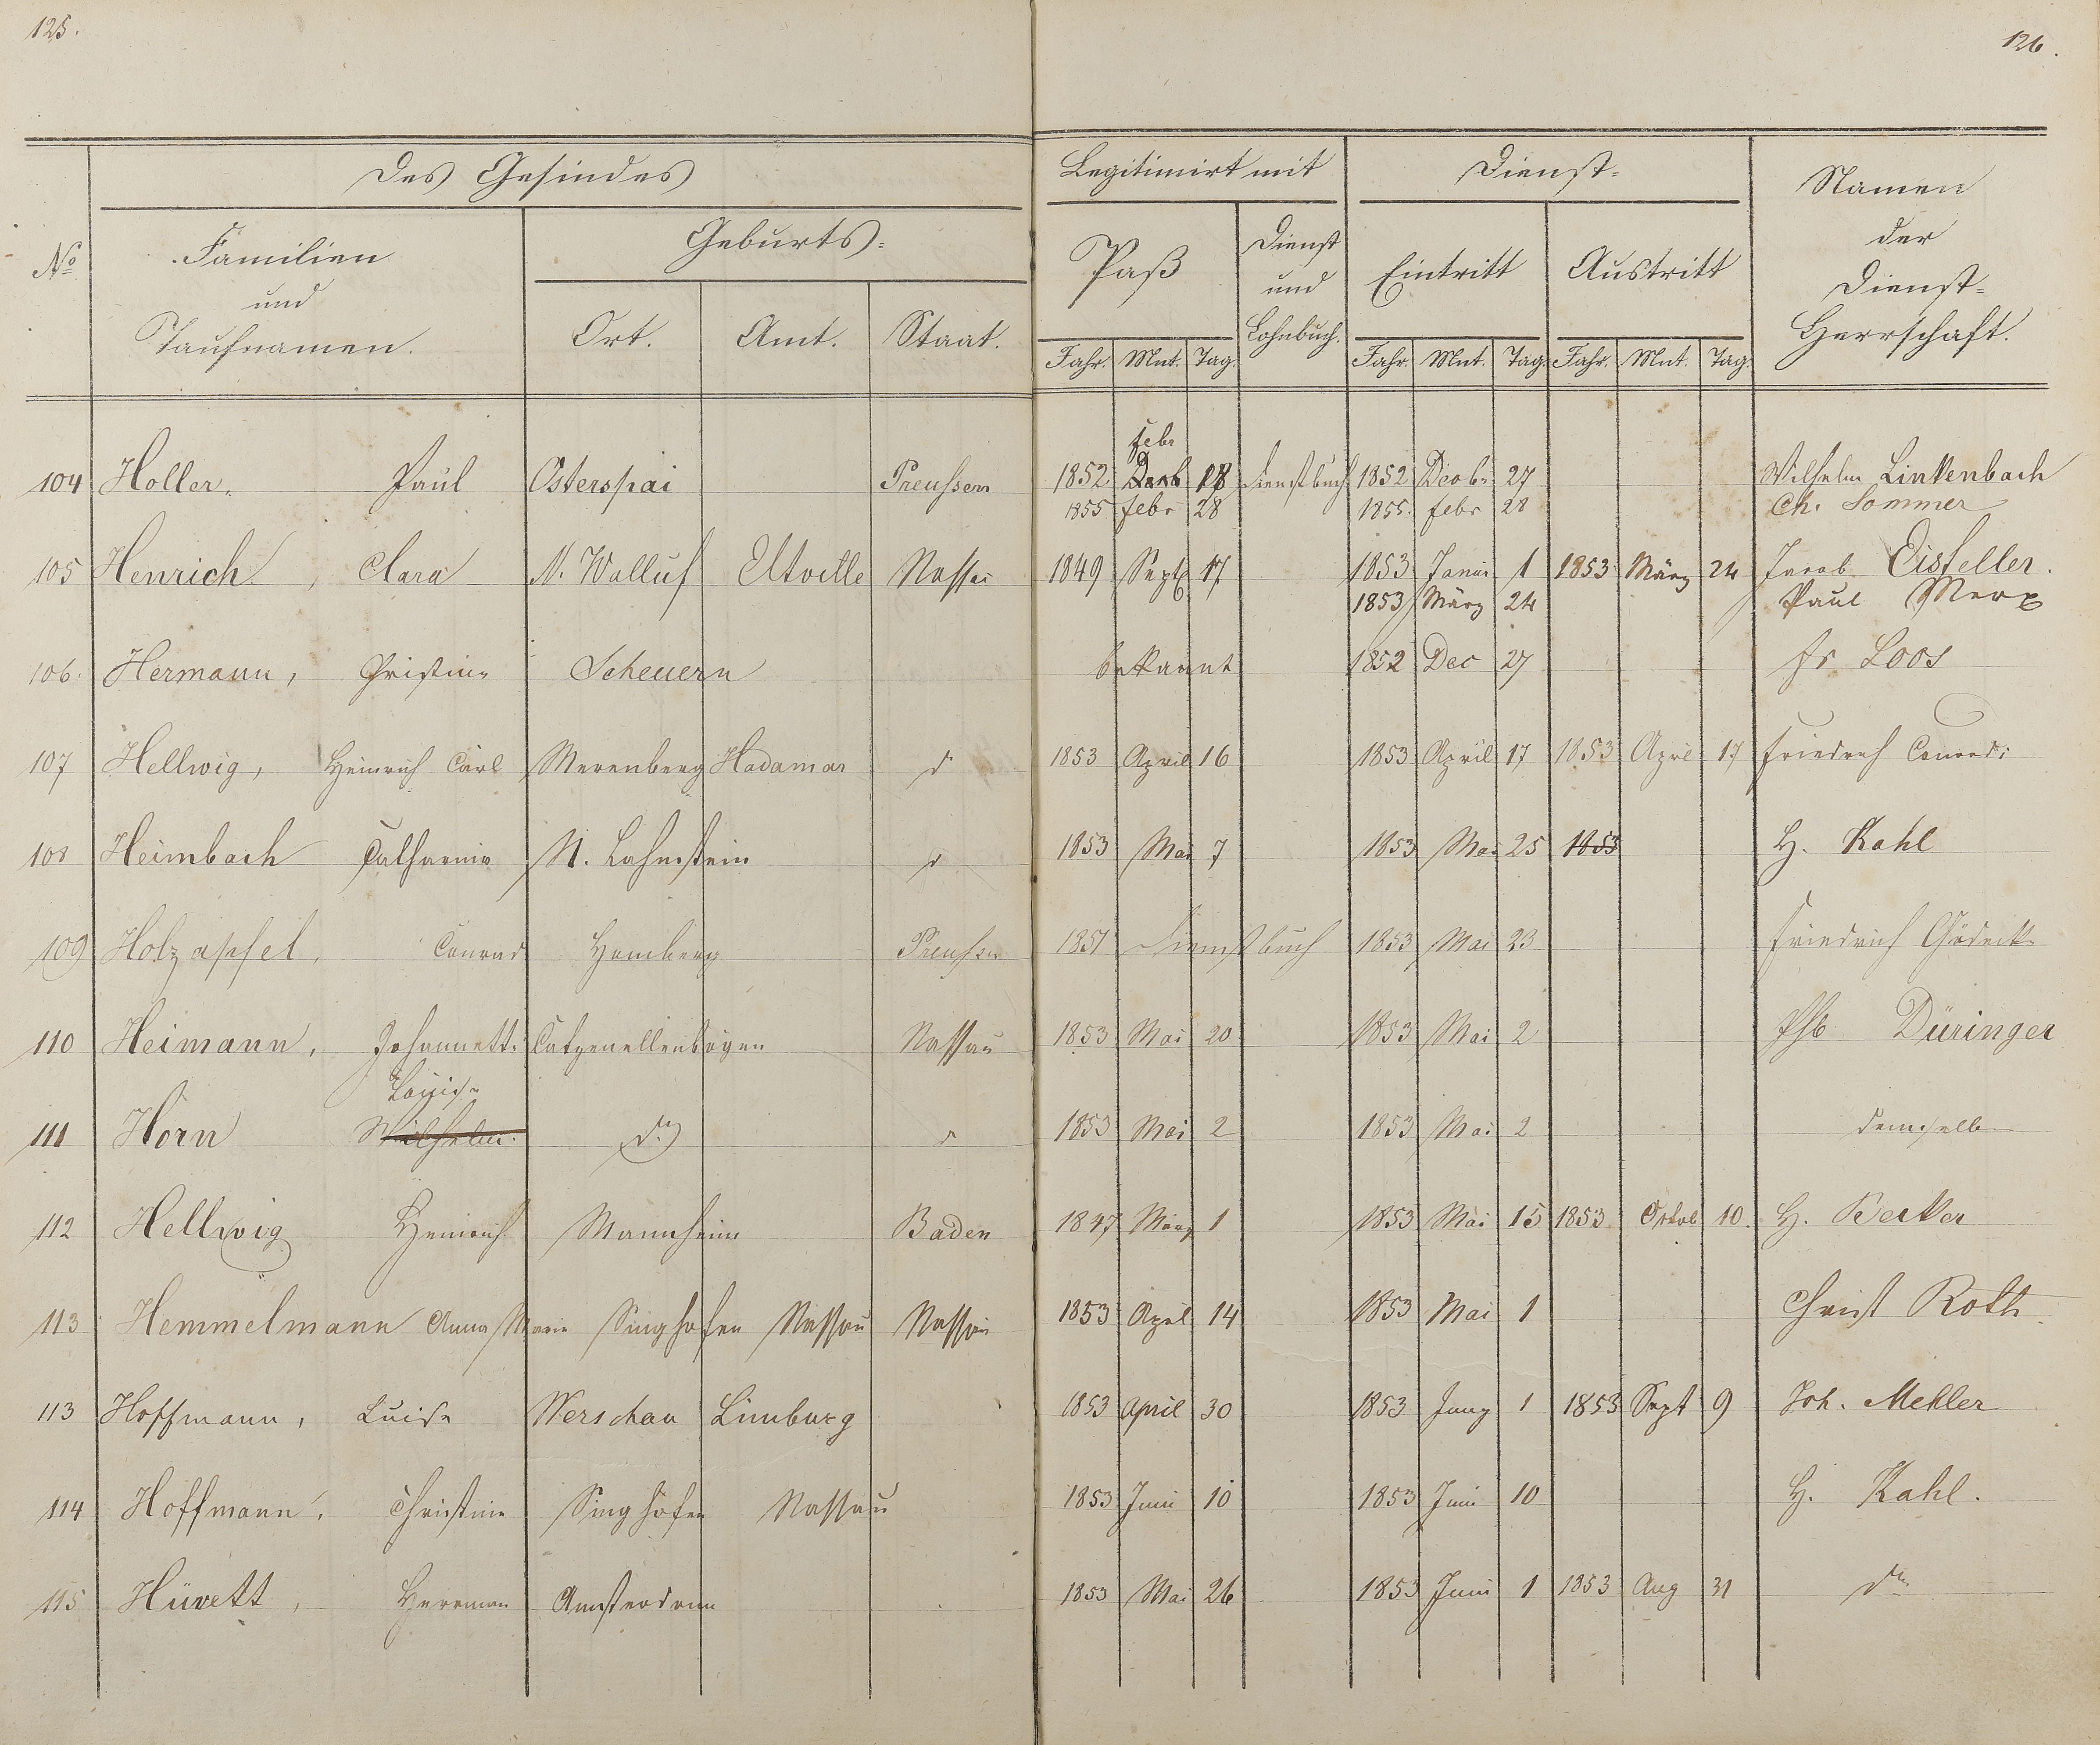 125.
126.
Des Gesindes
Legitimirt mit
Dienst=
Namen der Dienst= Herrschaft.
No
Familien und Taufnamen.
Geburts=
Paß
Dienst und Lohnbuch.
Eintritt
Austritt
Ort. Amt. Staat.
Jahr. Mnt. Tag. Jahr. Mnt. Tag. Jahr. Mnt. Tag.
Febr
104 Holler, Paul Osterspai Preußen 1852 18 Dienstbuch 1852 Decbr 27 Wilhelm Linkenbach
1855 febr 28 1855. febr 28 Ch. Sommer
105 Henrich, Clara N. Walluf Eltville Nassau 1849 Sept 17 1853 Januar 1 1853 März 24 Jacob Eisfeller.
1853 März 24 Paul Merx
106. Hermann, Christine Scheuern bekannt 1852 Dec 27 Fr Loos
107 Hellwig, Heinrich Carl Merenberg Hadamar d 1853 April 16 1853 April 17 1853 April 17 Friedrich Conradi
108 Heimbach Catharina N. Lahnstein d 1853 Mai 7 1853 Mai 25 1853 H. Kahl
109 Holzapfel, Conrad Homberg Preußen 1851 Dienstbuch 1853 Mai 23 Friedrich Gödecke
110 Heimann, Johannette Catzenellenbogen Nassau 1853 Mai 20 1853 Mai 2 Phb Düringer
Louise
111 Horn Wilhelm. do d 1853 Mai 2 1853 Mai 2 demselben
112 Hellwig Heinrich Mannheim Baden 1847 März 1 1853 Mai 15 1853 Octob 10. H. Becker
113 Hemmelmann Anna Marie Singhofen Nassau Nassau 1853 April 14 1853 Mai 1 Christ Roth
113 Hoffmann, Luise Werschau Limburg 1853 April 30 1853 Juny 1 1853 Sept 9 Joh. Mehler
114 Hoffmann, Christine Singhofen Nassau 1853 Juni 10 1853 Juni 10 H. Kahl.
115 Hüvett, Herrman Amsterdam 1853 Mai 26 1853 Juni 1 1853 Aug 31 do